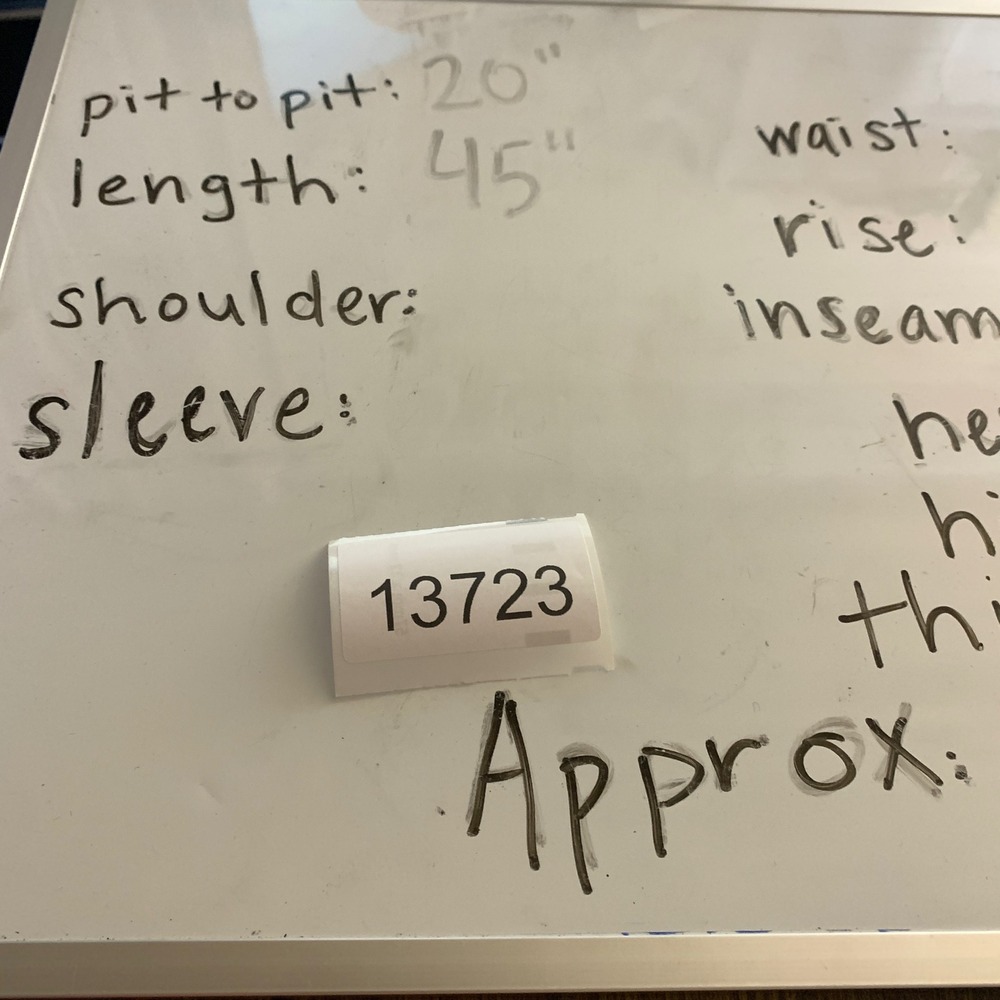 pit to pit: 20"
length: 45"
shoulder:
sleeve:
waist:
rise:
inseam
he
hi
thi
13723
Approx: